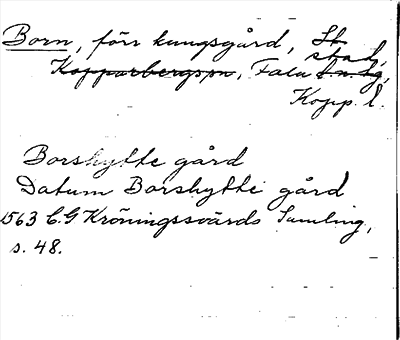 Born, förr kungsgård, St
Kopparbergs sn, Falu stad,
Kopp. l.
Borshytte gård
Datum Borshytte gård
1563 C.G Kröningssvärds Samling,
s. 48.